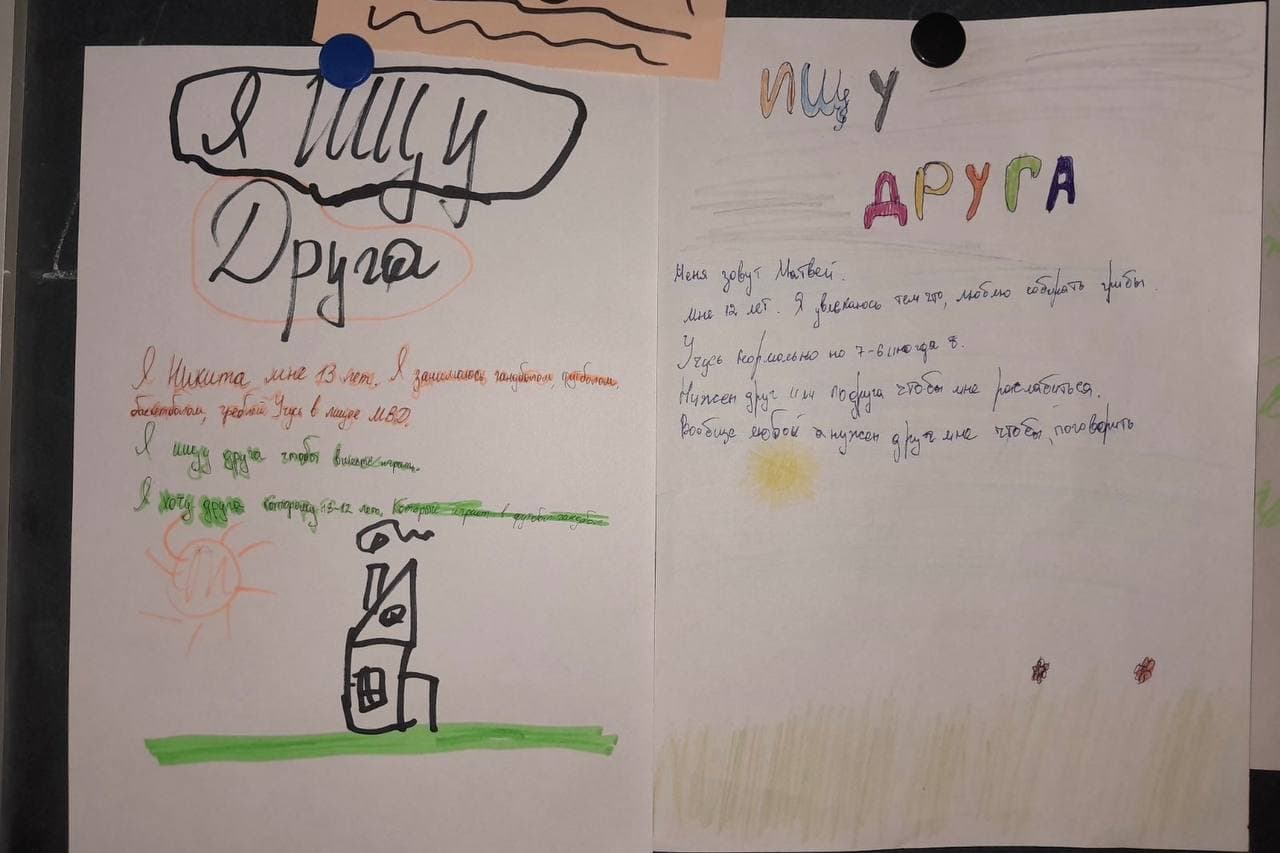 Я ИЩУ
Друга
Я Никита мне 13 лет. Я занимаюсь гандболом, футболом,
баскетболом, греблей Учусь в лицее МВД.
Я ищу друга чтобы вместе играть.
Я хочу друга которому 13-12 лет, Который играет в футбол гандбол
ИЩУ
ДРУГА
Меня зовут Матвей.
Мне 12 лет. Я увлекаюсь тем что, люблю собирать грибы.
Учусь нормально по 7-6 иногда 8.
Нужен друг или подруга чтобы мне раслабиться.
Вообще любой а нужен друг мне чтобы, поговорить